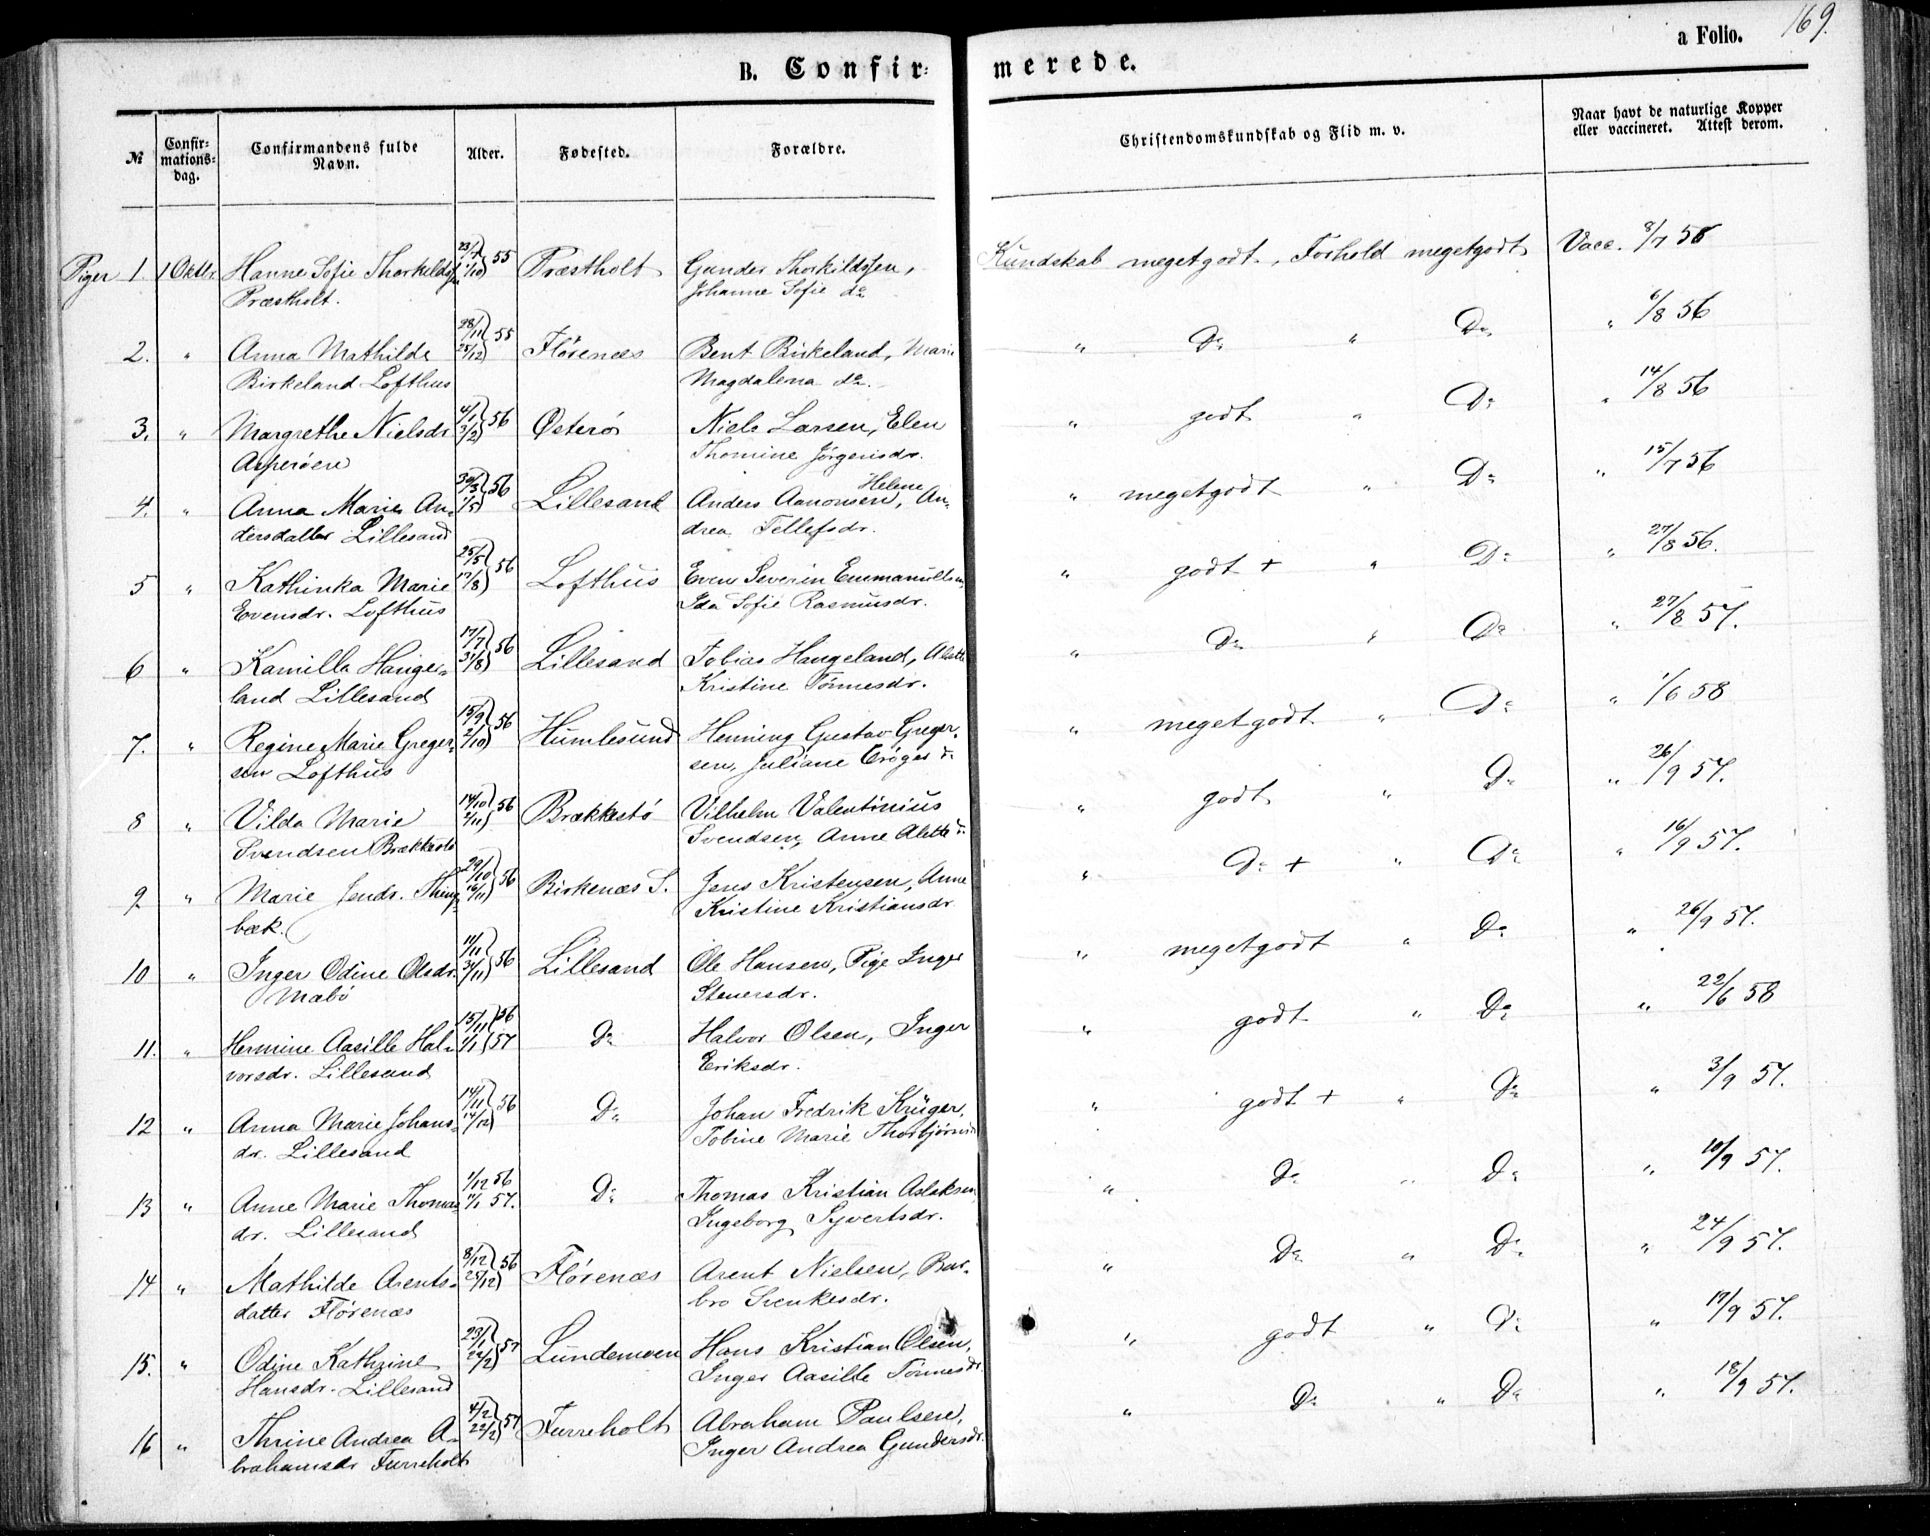 169.
a Folio.
B. Confir-merede.
№ Confir-mations-dag. Confirmandens fulde Navn. Alder. Fødested. Forældre. Christendomskundskab og Flid m. v. Naar havt de naturlige Kopper eller vaccineret. Attest derom.
Piger 1. 1 Oktbr. Hanne Sofie Thorkilds 23/7 55 Præstholt Gunder Thorkildssen, Kundskab megetgodt, Forhold megetgodt Vacc. 8/7 58
Præstholt. 1/10 Johanne Sofie do
2. " Anna Mathilde 28/11 55 Flørenæs Bent Birkeland, Marie " Do " Do " 6/8 56
Birkeland Lofthus 25/12 Magdalena do.
3. " Margrethe Nielsdr 4/1 56 Østerø Niels Larsen, Elen " godt " Do " 14/8 56
Asperøen 3/2 Thomine Jörgensdr.
4. " Anna Marie An- 30/3 56 Lillesand Anders Aanonsen, Helene An- " megetgodt " Do " 15/7 56
dersdatter Lillesand 1/5 drea Tellefsdr.
5 " Kathinka Marie 25/5 56 Lofthus Even Severin Emmanuelsen, " godt + " Do " 27/8 56.
Evensdr. Lofthus 17/8 Ida Sofie Rasmusdr.
6 " Kamilla Hauge- 17/7 56 Lillesand Tobias Haugeland, Alette " Do " Do " 27/8 57.
land Lillesand 31/8 Kristine Tönnesdr.
7. " Regine Marie Greger- 15/9 56 Humlesund Henning Gustav Greger- " megetgodt " Do " 1/6 58
sen Lofthus 2/10 sen, Juliane Crøger d:
8 " Vilda Marie 14/10 56 Brækkestö Vilhelm Valentinius " godt " Do " 26/9 57.
Svendsen Brækkestö 2/11 Svendsen, Anne Alette d:
9 " Marie Jensdr. Thing- 29/10 56 Birkenæs S. Jens Kristensen, Anne " Do + " Do " 16/9 57.
bæk. 16/11 Kristine Kristiansdr
10 " Inger Odine Olsdr. 11/11 56 Lillesand Ole Hansen, Pige Inger " megetgodt " Do " 26/9 57.
Mæbö 30/11 Stenersdr.
11. " Hermine Aasille Hal- 15/11 56 Do Halvor Olsen, Inger " godt " Do " 22/6 58
vorsdr. Lillesand 1/1 57 Eriksdr.
12 " Anna Marie Johans- 14/11 56 Do Johan Fredrik Krüger, " godt + " Do " 3/9 57.
dr. Lillesand 14/12 Tobine Marie Thorbjörnsdr
13 " Anne Marie Thomas- 1/12 56 Do Thomas Kristian Aslaksen, " Do " Do " 10/9 57.
dr. Lillesand 1/1 57. Ingeborg Syvertsdr.
14 " Mathilde Arents- 8/12 56 Flørenæs Arent Nielsen, Bar- " Do " Do " 24/9 57.
datter Flørenæs 25/12 bro Svenkesdr.
15. " Odine Kathrine 23/1 57 Lundemoen Hans Kristian Olsen, " godt " Do " 17/9 57.
Hansdr. Lillesand 22/2 Inger Aasille Tönnesdr.
16 " Thrine Andrea A- 4/2 57 Furreholt Abraham Paulsen, " Do " Do " 18/9 57.
brahamsdr Furreholt 22/2 Inger Andrea Gundersdr.